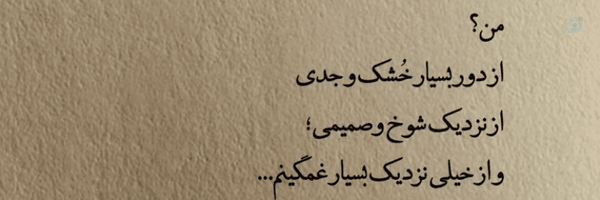 من؟
از دور بسیار خُشک و جدی
از نزدیک شوخ و صمیمی؛
و از خیلی نزدیک بسیار غمگینم...